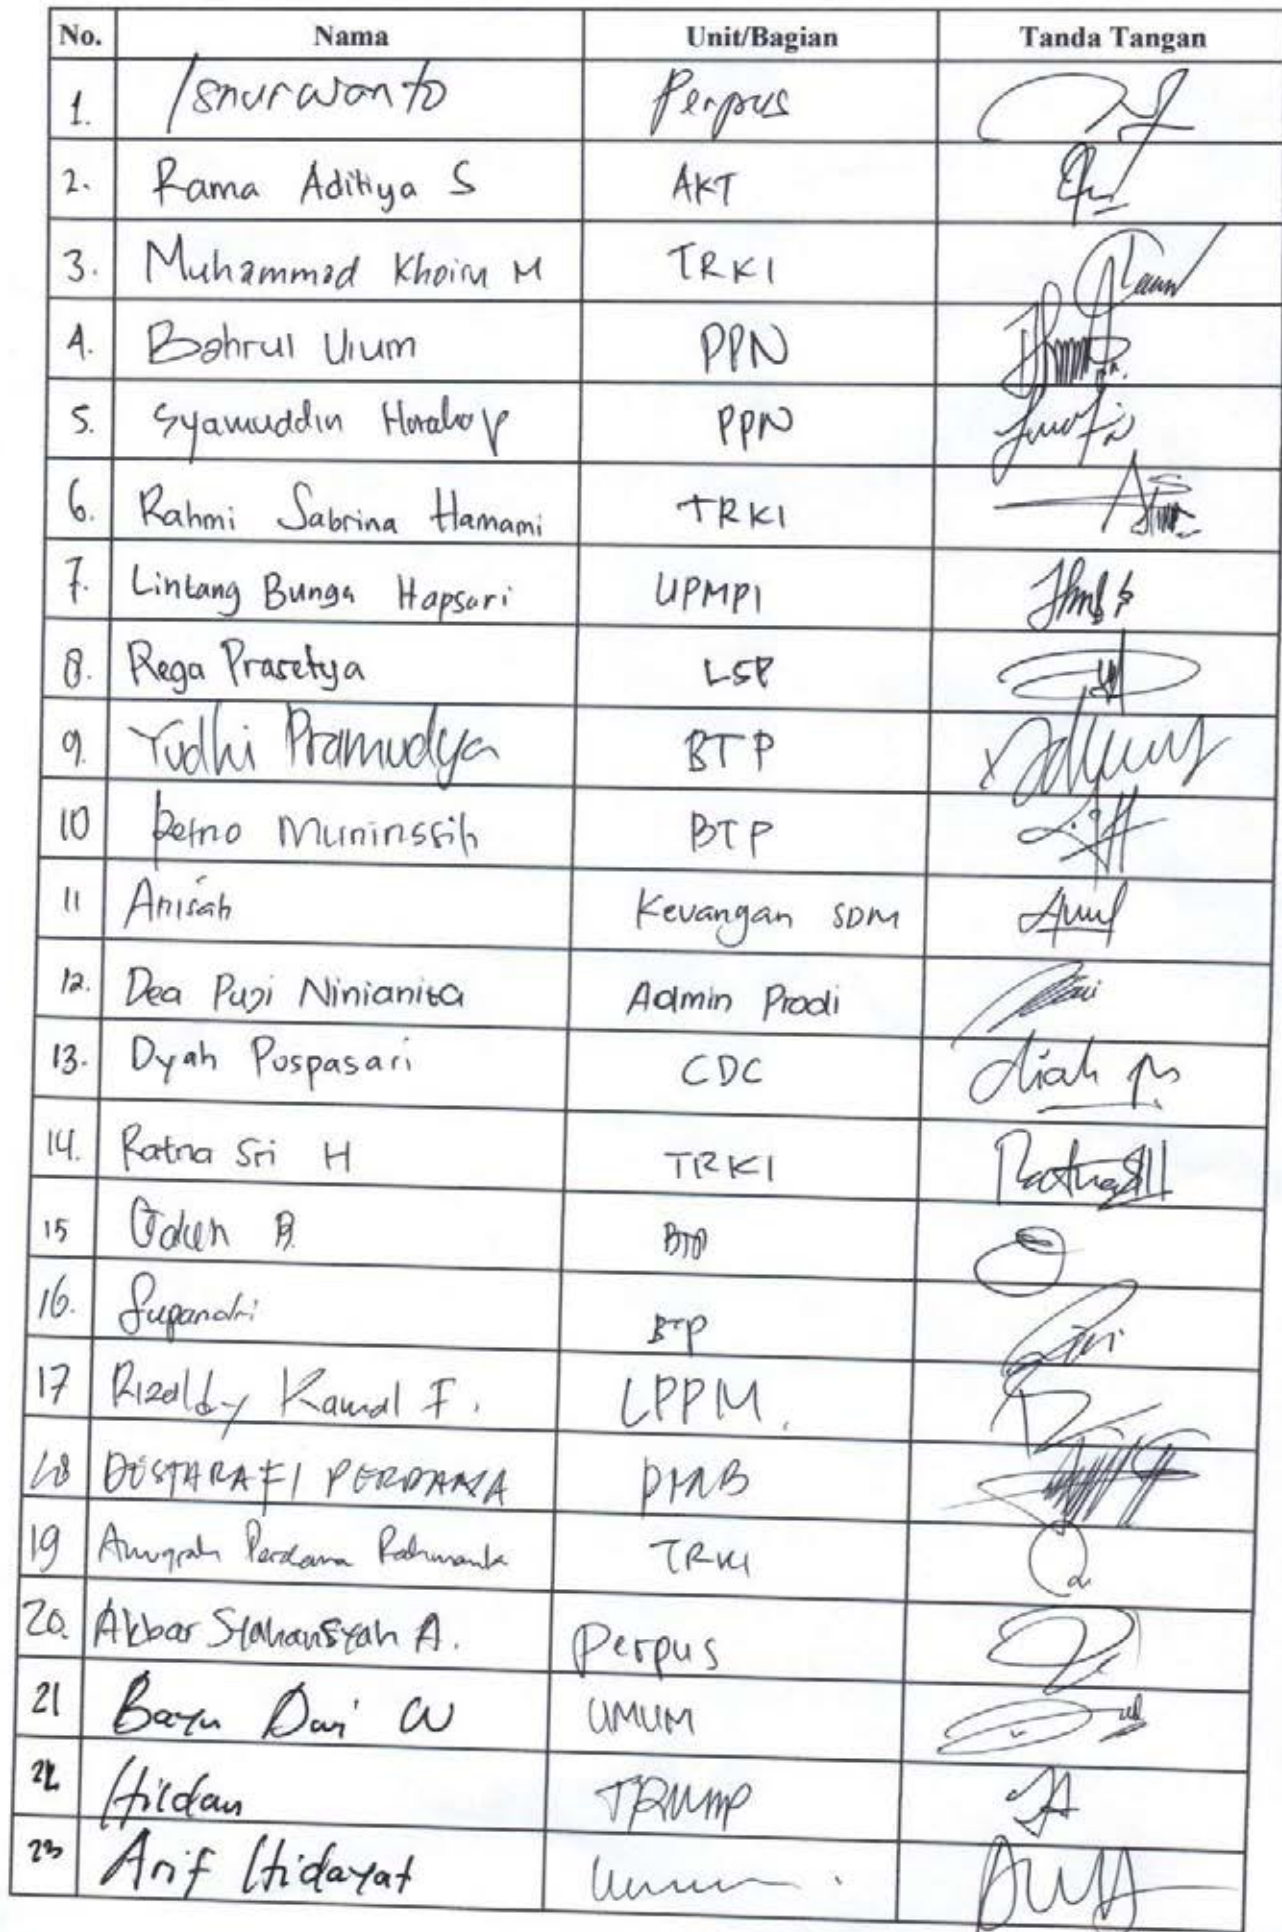 No. Nama Unit/Bagian Tanda Tangan
1. Isnurwanto Perpus
2. Rama Aditiya S AKT
3. Muhammad Khoiru M TRKI
4. Bahrul Ulum PPN
5. Syamuddin Harahap PPN
6. Rahmi Sabrina Hamami TRKI
7. Lintang Bunga Hapsari UPMPI
8. Rega Prasetya LSP
9. Yudhi Pramudya BTP
10 Retno Muninssih BTP
11 Anisah Keuangan SDM
12. Dea Puji Ninianita Admin Prodi
13. Dyah Puspasari CDC diah ps
14. Ratna Sri H TRKI RatnaSH
15 BTP
16. Supandri BTP
17 Rizaldy Kamal F. LPPM.
18 PERDANA PMB
19 Anugrah Perdana Rahmanta TRKI
20. Akbar Syahansyah A. Perpus
21 Bayu Dwi W UMUM
22 Hildan TRUMP
23 Arif Hidayat Umum.